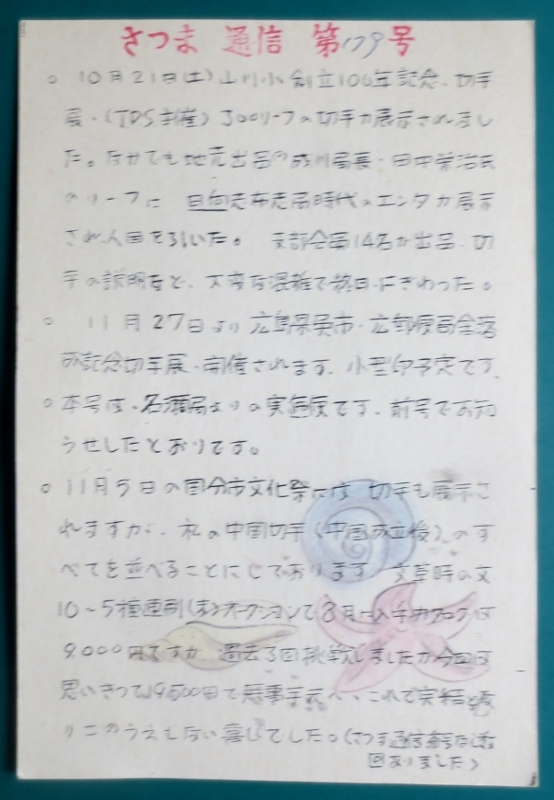 さつま 通信 第179号
○ 10月21日(土)山川小創立100年記念、切手
展、(JPS主催)300リーフの切手が展示されまし
た。なかでも地元出品の 川局長・田中栄治氏
のリーフに 日向志布志局時代のエンタが展示
され人目を引いた。 支部会員14名が出品、切
手の説明など、大変な混雑で終日にぎわった。
○ 11月27日より広島県呉市・広郵便局全落
の記念切手展、開催されます、小型印予定です、
○本号は、名瀬局よりの実逓便です、前号でお知
らせしたとおりです。
○ 11月5日の国分市文化祭には 切手も展示さ
れますが、私の中国切手(中国成立後)のす
べてを並べることにしております 文革時の文
10〜5種連刷(束)オークションで8月に入手
9.000円ですが 過去3回挑戦しましたが今回は
思いきって 円で無事手元へ、これで実
りこのうえもない喜びでした。(さつま通信
回ありました)